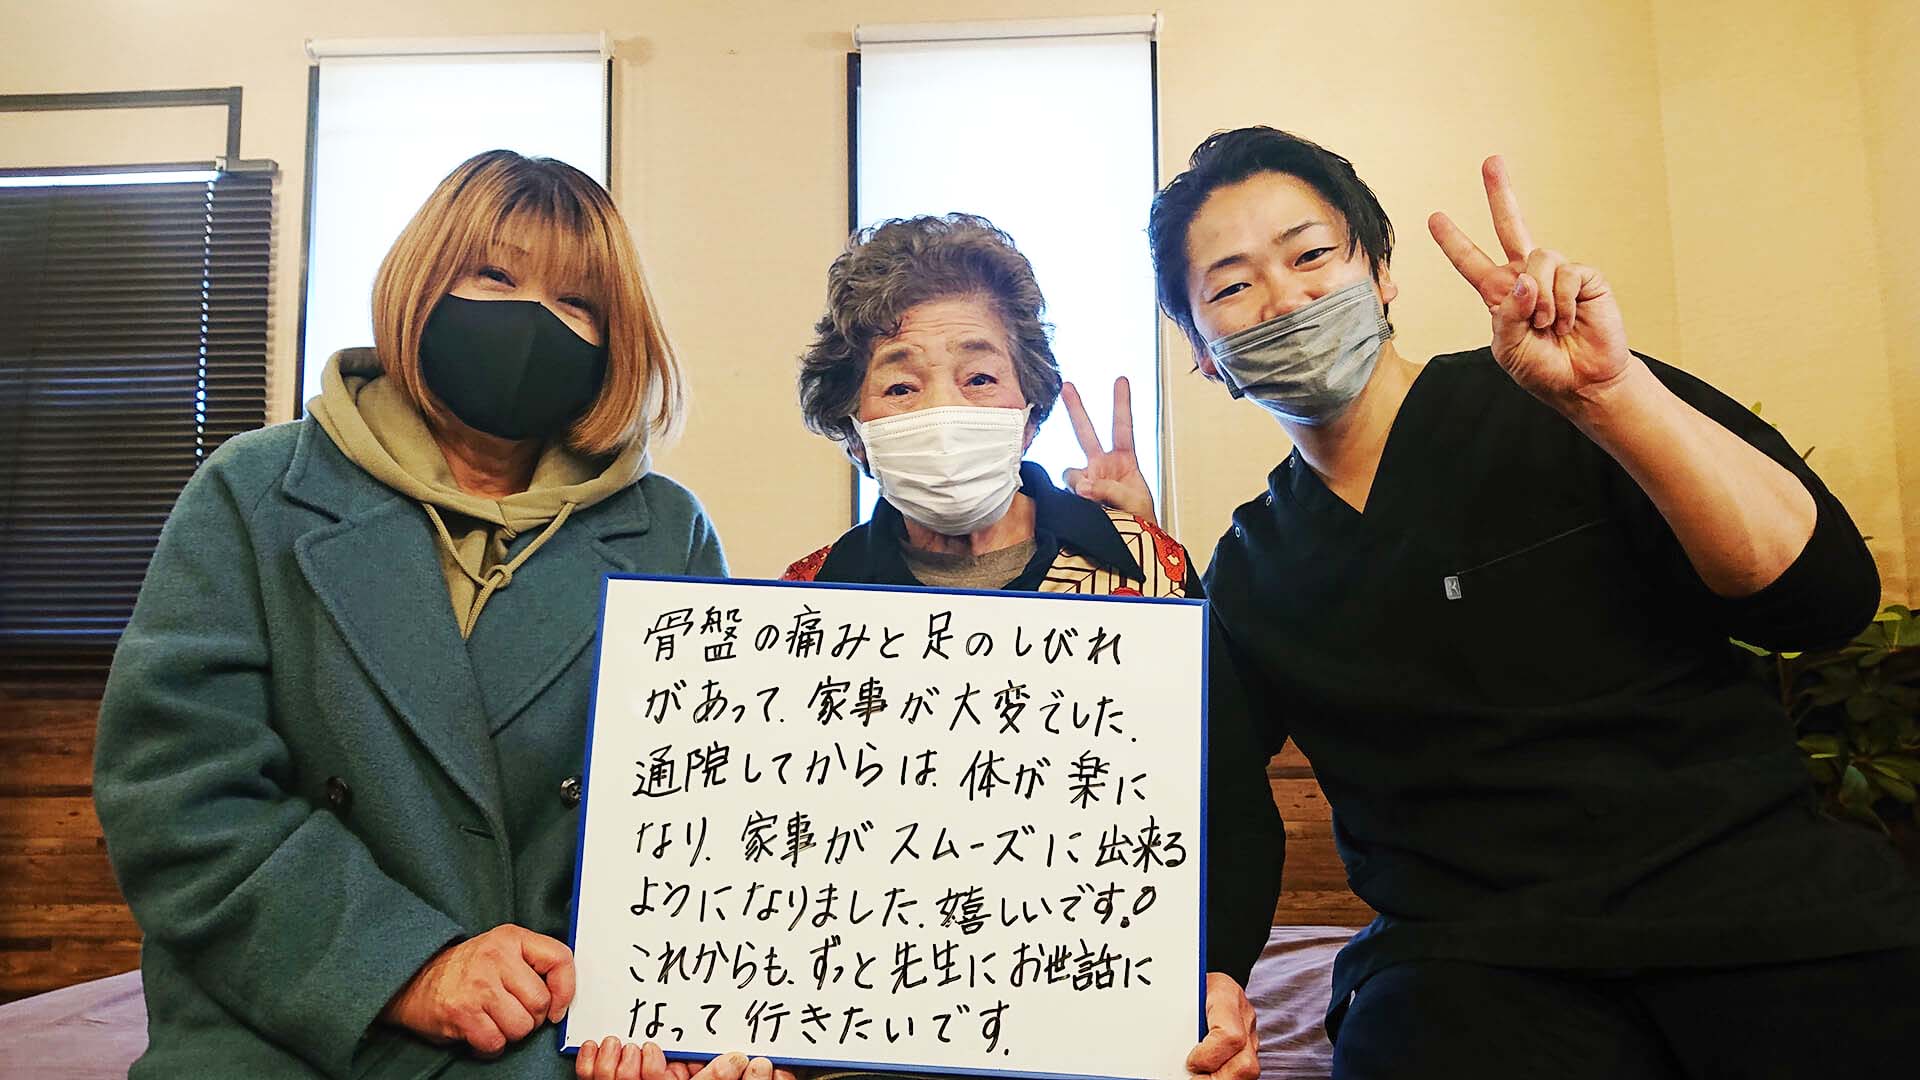 骨盤の痛みと足のしびれ
があって、家事が大変でした.
通院してからは、体が楽に
なり、家事がスムーズに出来る
ようになりました、嬉しいです。
これからも、ずっと先生にお世話に
なって行きたいです.